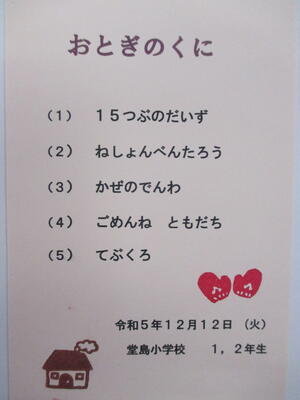 おとぎのくに
（１） １５つぶのだいず
（２） ねしょんべんたろう
（３） かぜのでんわ
（４） ごめんね　ともだち
（５） てぶくろ
令和５年１２月１２日　（火）
堂島小学校　　１，２年生